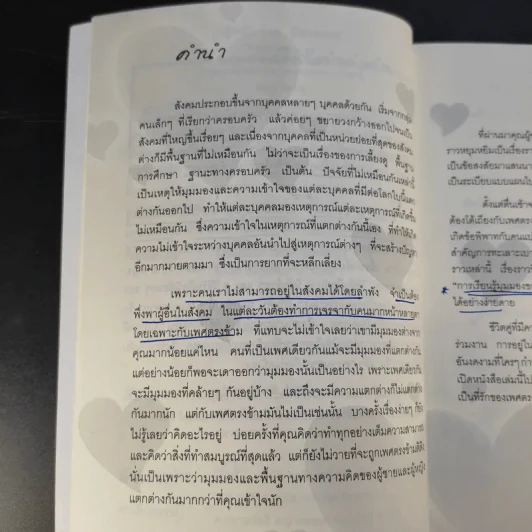 คำนำ
สังคมประกอบขึ้นจากบุคคลหลายๆ บุคคลด้วยกัน เริ่มจากกลุ่ม
คนเล็กๆ ที่เรียกว่าครอบครัว แล้วค่อยๆ ขยายวงกว้างออกไปจนเป็น
สังคมที่ใหญ่ขึ้นเรื่อยๆ และเนื่องจากบุคคลที่เป็นหน่วยย่อยที่สุดของสังคม
ต่างก็มีพื้นฐานที่ไม่เหมือนกัน ไม่ว่าจะเป็นเรื่องของการเลี้ยงดู พื้นฐาน
การศึกษา ฐานะทางครอบครัว เป็นต้น ปัจจัยที่ไม่เหมือนกันเหล่านี้
เป็นเหตุให้มุมมองและความเข้าใจของแต่ละบุคคลที่มีต่อโลกใบนี้แตก
ต่างกันออกไป ทำให้แต่ละบุคคลมองเหตุการณ์แต่ละเหตุการณ์ที่เกิดขึ้น
ไม่เหมือนกัน ซึ่งความเข้าใจในเหตุการณ์ที่แตกต่างกันนี้เอง ที่ทำให้เกิด
ความไม่เข้าใจระหว่างบุคคลอันนำไปสู่เหตุการณ์ต่างๆ ที่จะสร้างปัญหา
อีกมากมายตามมา ซึ่งเป็นการยากที่จะหลีกเลี่ยง
เพราะคนเราไม่สามารถอยู่ในสังคมได้โดยลำพัง จำเป็นต้อง
พึ่งพาผู้อื่นในสังคม ในแต่ละวันต้องทำการเจรจากับคนมากหน้าหลายตา
โดยเฉพาะกับเพศตรงข้าม ที่แทบจะไม่เข้าใจเลยว่าเขามีมุมมองต่างจาก
คุณมากน้อยแค่ไหน คนที่เป็นเพศเดียวกันแม้จะมีมุมมองที่แตกต่างกัน
แต่อย่างน้อยก็พอจะเดาออกว่ามุมมองนั้นเป็นอย่างไร เพราะเพศเดียวกัน
จะมีมุมมองที่คล้ายๆ กันอยู่บ้าง และถึงจะมีความแตกต่างก็ไม่แตกต่าง
กันมากนัก แต่กับเพศตรงข้ามมันไม่เป็นเช่นนั้น บางครั้งเรื่องง่ายๆ ก็ยัง
ไม่รู้เลยว่าคิดอะไรอยู่ บ่อยครั้งที่คุณคิดว่าทำทุกอย่างเต็มความสามารถ
และคิดว่าสิ่งที่ทำสมบูรณ์ที่สุดแล้ว แต่ก็ยังไม่วายที่จะถูกเพศตรงข้ามตำหนิ
นั่นเป็นเพราะว่ามุมมองและพื้นฐานทางความคิดของผู้ชายและผู้หญิง
แตกต่างกันมากกว่าที่คุณเข้าใจนัก
ที่ผ่านมาคุณผู้
ราวหยุมหยิมเป็นเรื่องรา
เป็นข้อสงสัยมาแสนนา
เป็นระเบียบแบบแผนไป
ตั้งแต่ตื่นเช้าจ
ต้องได้เถียงกับเพศตรง
เกิดข้อพิพาทกับคนแป
สำคัญการทะเลาะเบา
ราวเหล่านี้ เรื่องราวใ
"การเรียนรู้มุมมองขอ
ได้อย่างง่ายดาย
ชีวิตคู่ที่มีค
ร่วมงาน การอยู่ใน
อันงดงามที่ใครๆ ก
เปิดหนังสือเล่มนี้ไป
เป็นที่รักของเพศตร